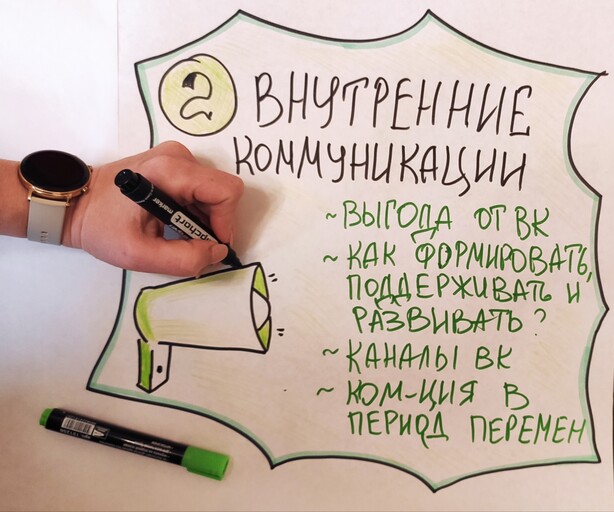 2 ВНУТРЕННИЕ
КОММУНИКАЦИИ
~ ВЫГОДА ОТ ВК
~ КАК ФОРМИРОВАТЬ,
ПОДДЕРЖИВАТЬ И
РАЗВИВАТЬ?
~ КАНАЛЫ ВК
~ КОМ-ЦИЯ В
ПЕРИОД ПЕРЕМЕН
pchart
marker